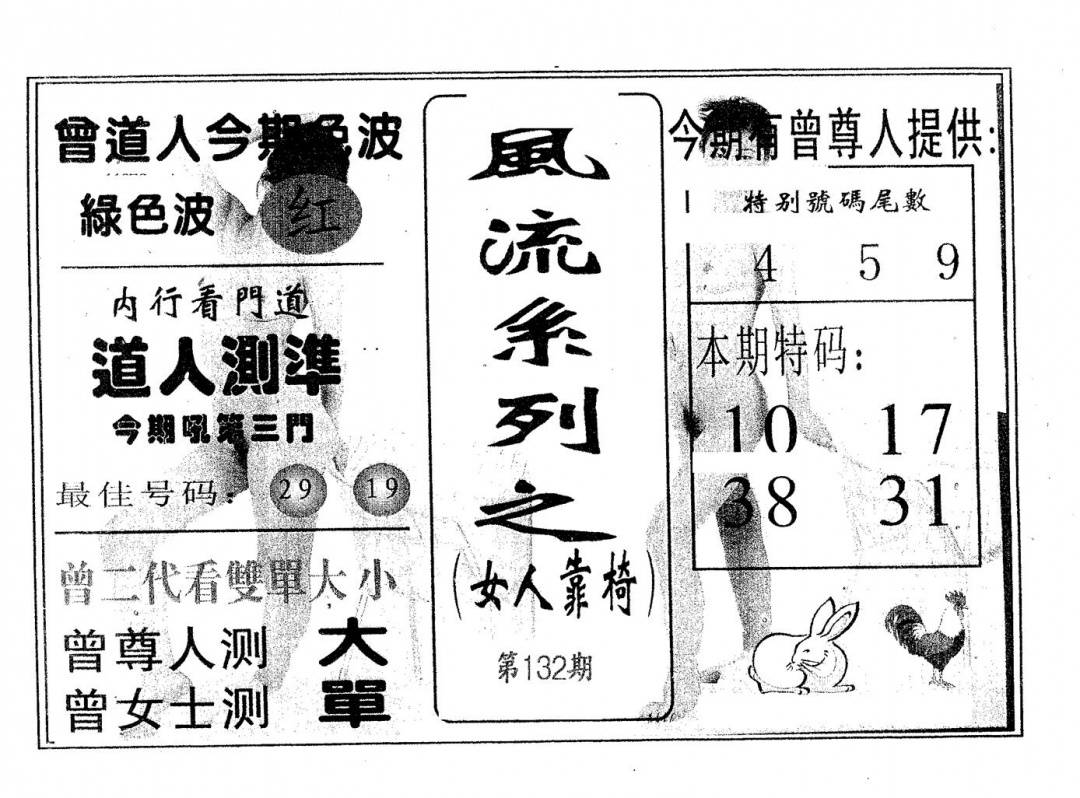 曾道人今期色波
綠色波 红
内行看門道
道人測準
今期吼第三門
最佳号码: 29 19
曾二代看雙單大小
曾尊人测 大
曾女士测 單
風流系列之
(女人靠椅)
第132期
今期有曾尊人提供:
特别號碼尾數
4 5 9
本期特码:
10 17
38 31